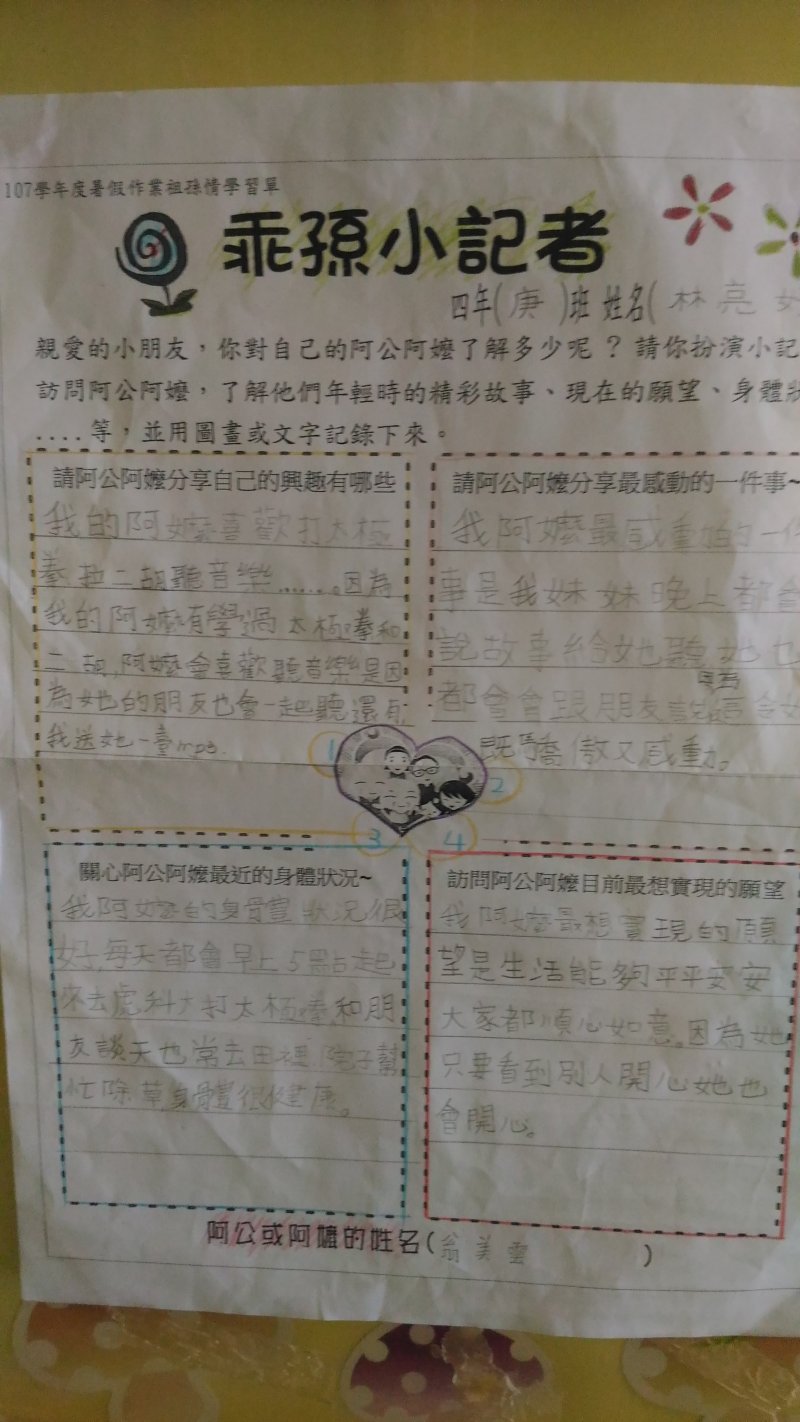 107學年度暑假作業祖孫情學習單
乖孫小記者
四年(庚)班 姓名(林亮
親愛的小朋友，你對自己的阿公阿嬤了解多少呢？請你扮演小記
訪問阿公阿嬤，了解他們年輕時的精彩故事、現在的願望、身體狀
....等，並用圖畫或文字記錄下來。
請阿公阿嬤分享自己的興趣有哪些
我的阿嬤喜歡打太極
拳拉二胡聽音樂.......。因為
我的阿嬤有學過太極拳和
二胡,阿嬤會喜歡聽音樂是因
為她的朋友也會一起聽還有
我送她一臺mp3.
1
請阿公阿嬤分享最感動的一件事~
我阿嬤最感動的一件
事是我妹妹晚上都會
說故事給她聽她也
都會會跟朋友說
既驕傲又感動。
2
3
關心阿公阿嬤最近的身體狀況~
我阿嬤的身體狀況很
好,每天都會早上5點起
來去虎科大打太極拳,和朋
友談天也常去田裡、院子幫
忙除草身體很健康。
4
訪問阿公阿嬤目前最想實現的願望
我阿嬤最想實現的願
望是生活能夠平平安安
大家都順心如意。因為她
只要看到別人開心她也
會開心。
阿公或阿嬤的姓名(翁美雲)